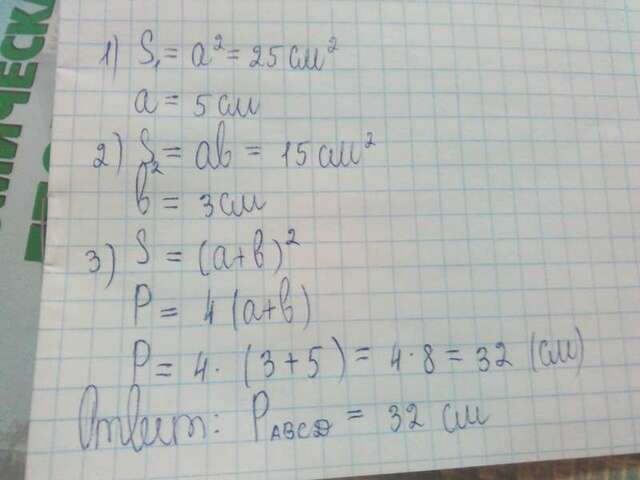 1) S₁ = a² = 25 см²
a = 5 см
2) S₂ = ab = 15 см²
b = 3 см
3) S = (a+b)²
P = 4(a+b)
P = 4 · (3+5) = 4·8 = 32 (см)
Ответ: P_ABCD = 32 см